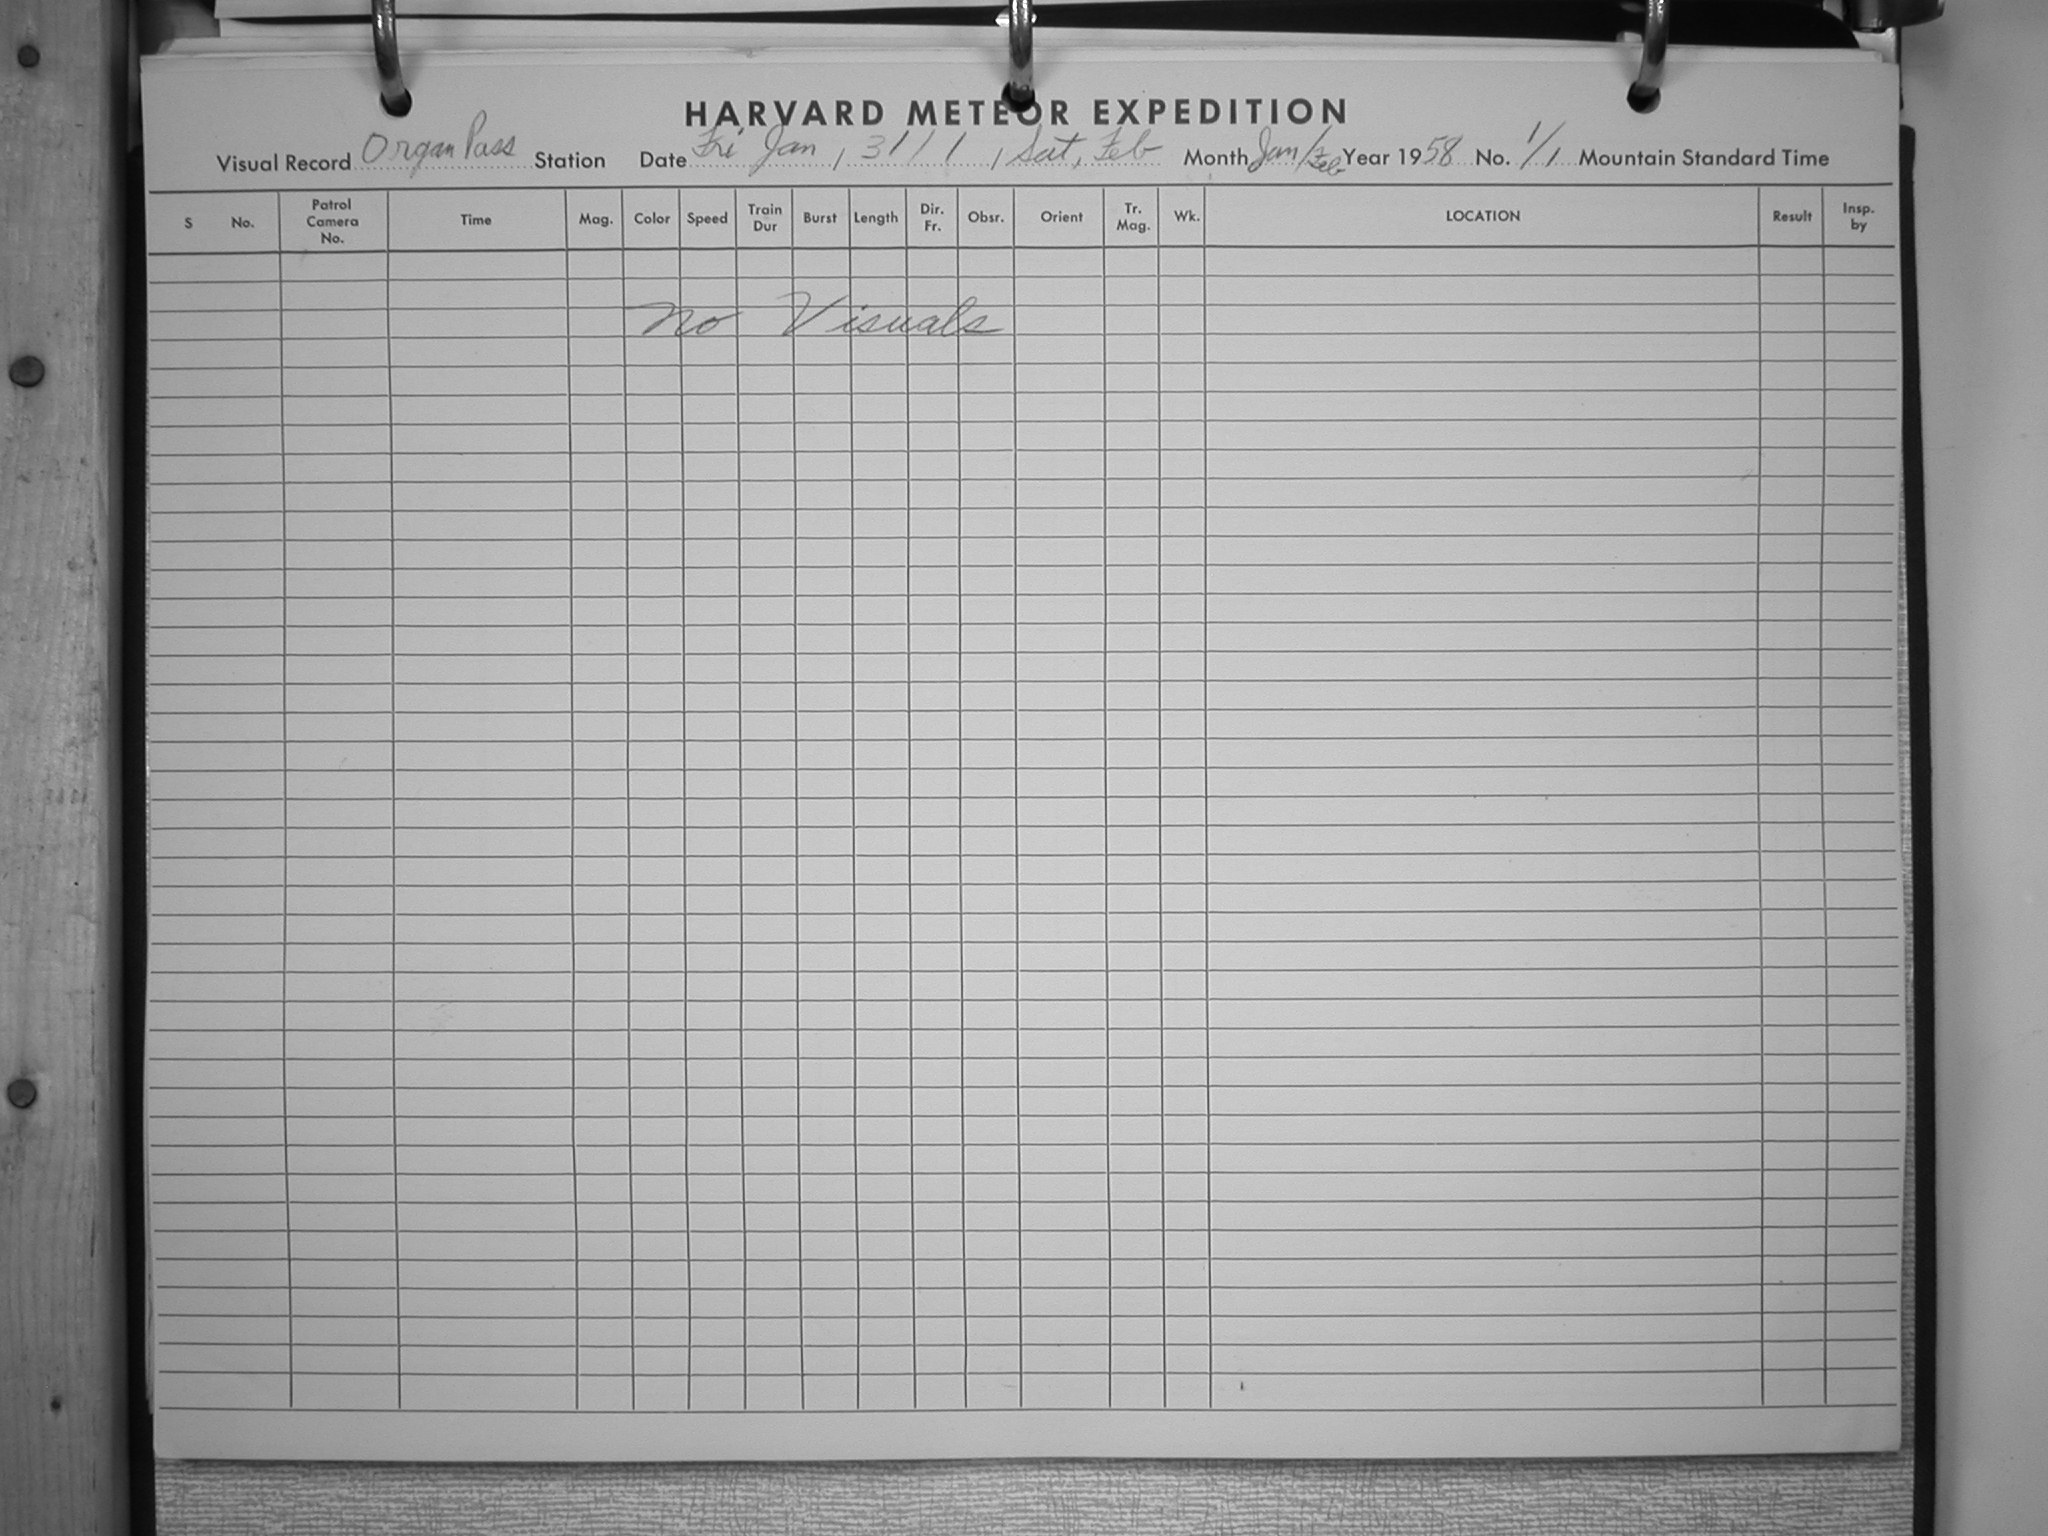 HARVARD METEOR EXPEDITION
Visual Record Organ Pass Station Date Fri Jan, 31/1, Sat, Feb Month Jan/Feb Year 1958 No. 1/1 Mountain Standard Time
S No. Patrol Camera No. Time Mag. Color Speed Train Dur Burst Length Dir. Fr. Obsr. Orient Tr. Mag. Wk. LOCATION Result Insp. by
No Visuals